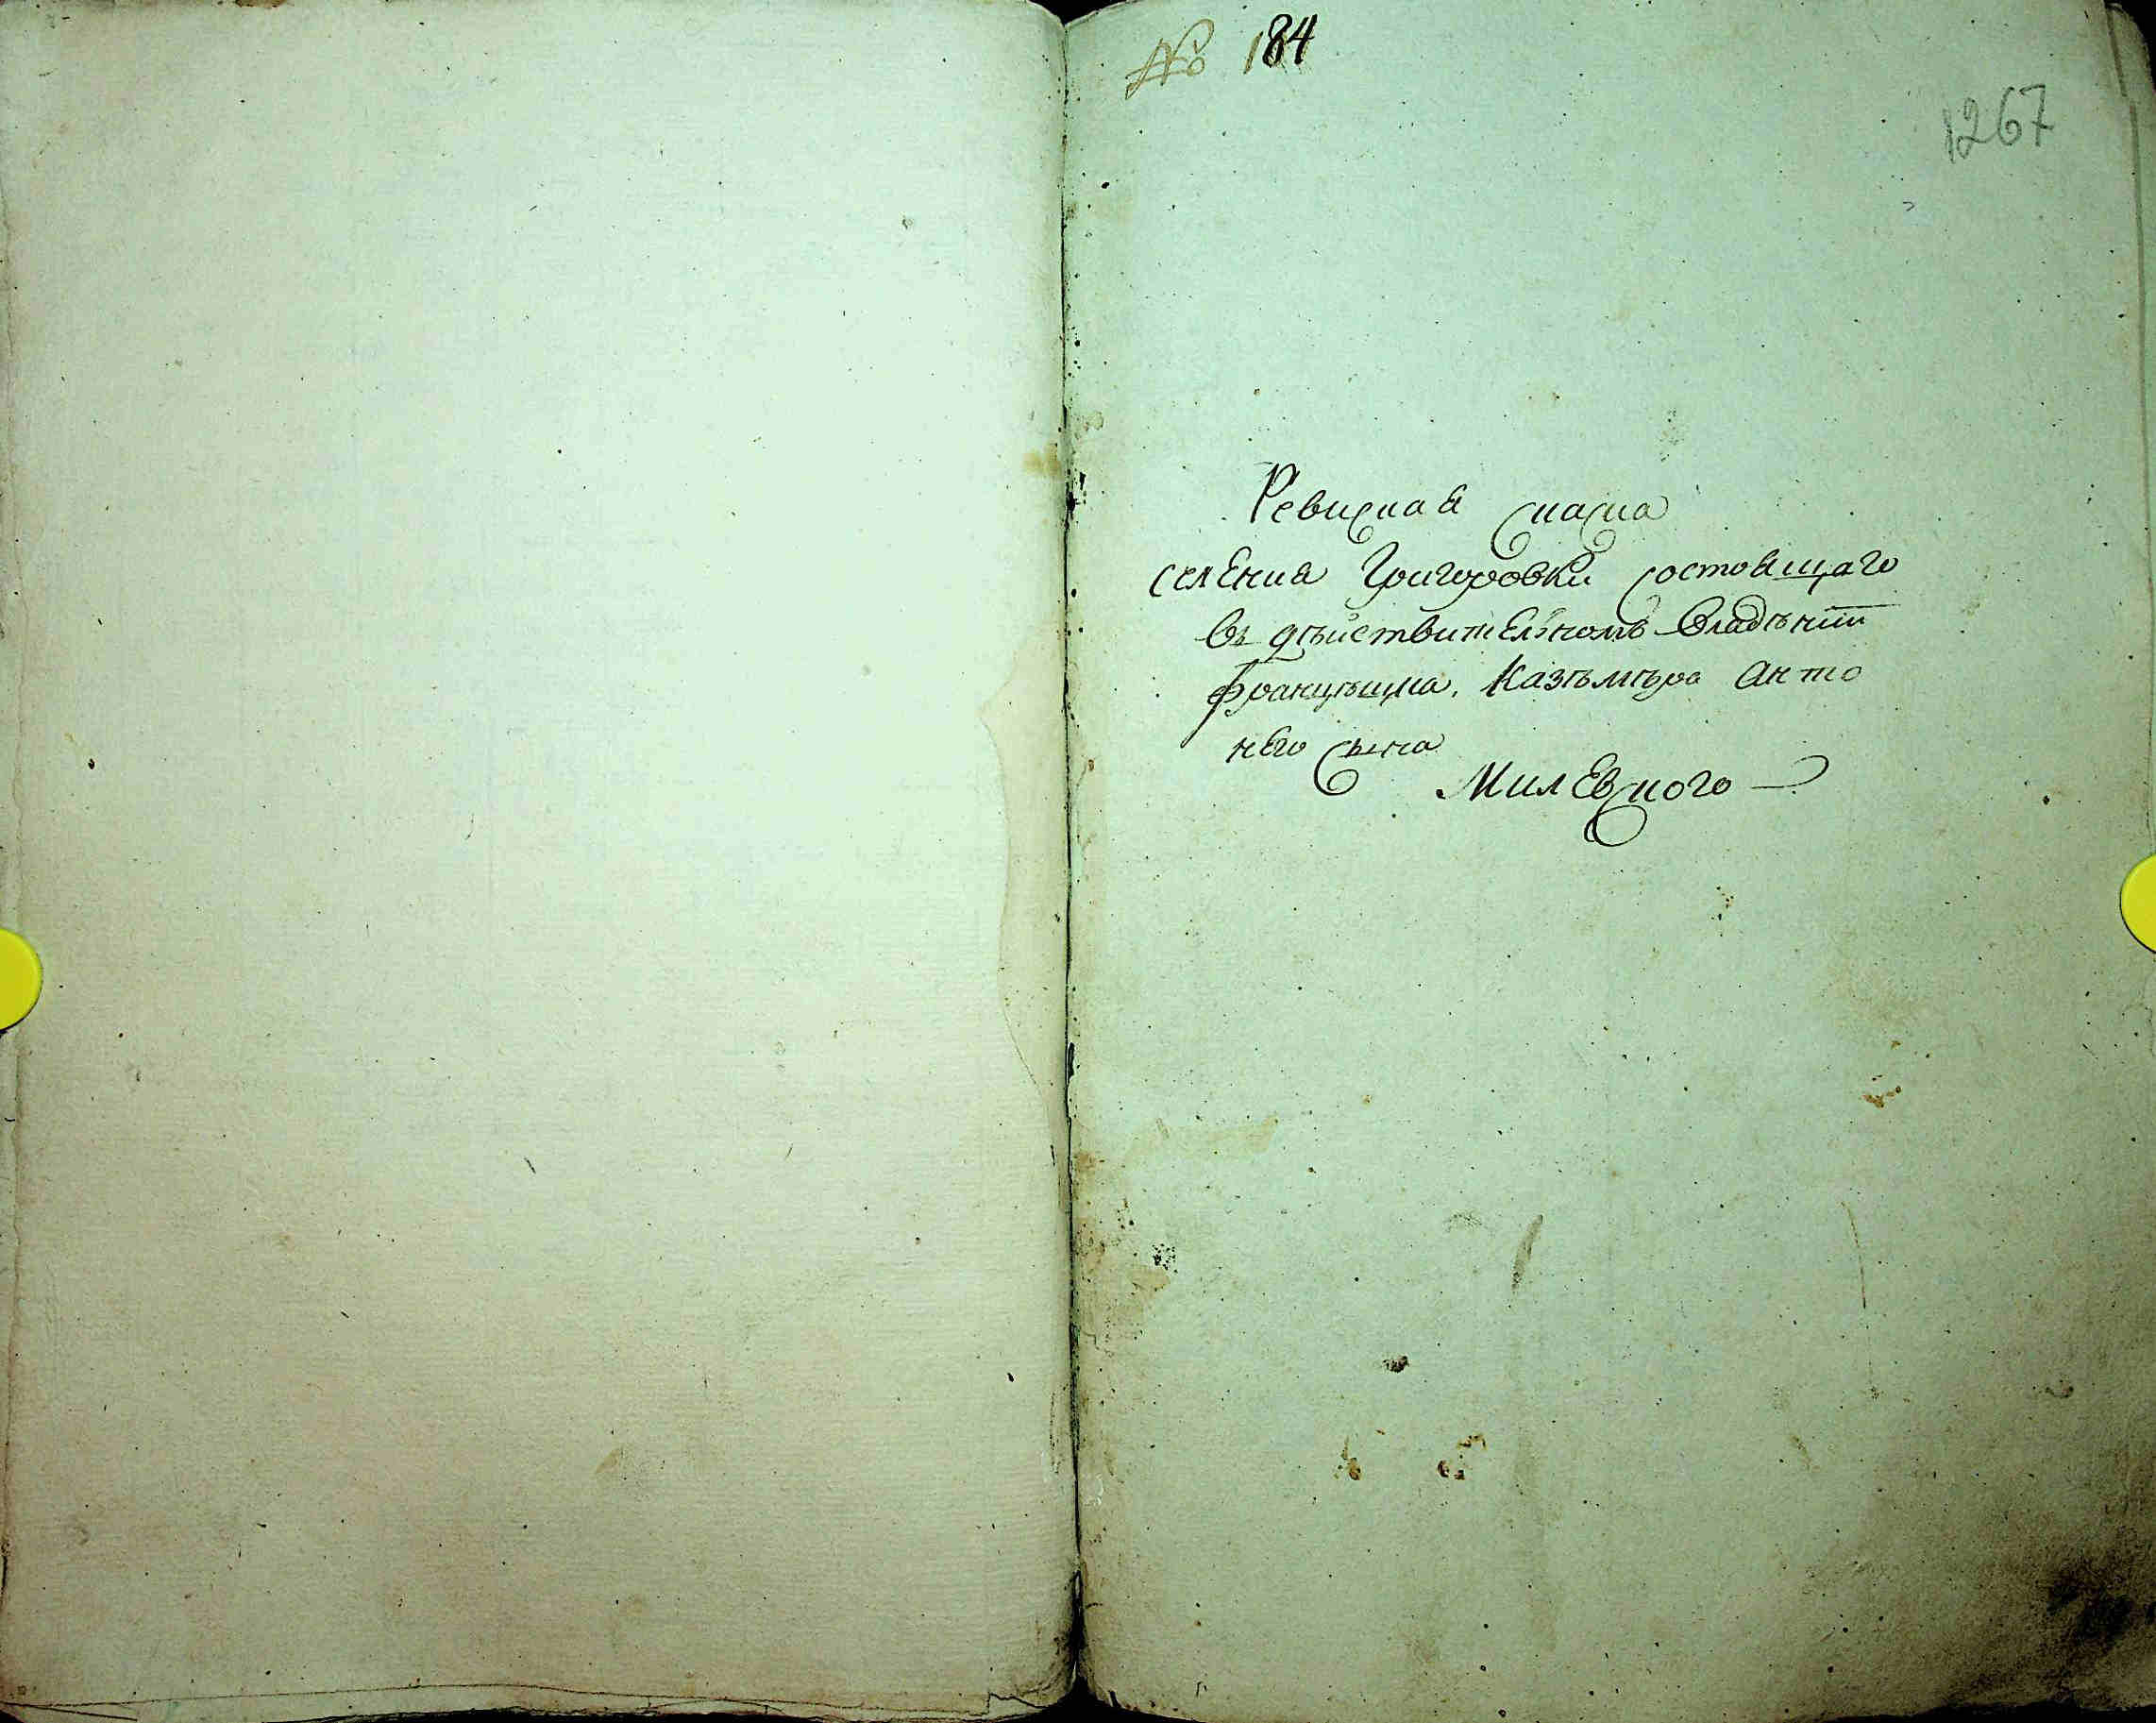 № 184
1267
Ревиская скаска
селения Григоровки состоящаго
въ дѣйствителномъ владѣнии
Францышка, Казѣмѣра Анто
него сына
Милевского